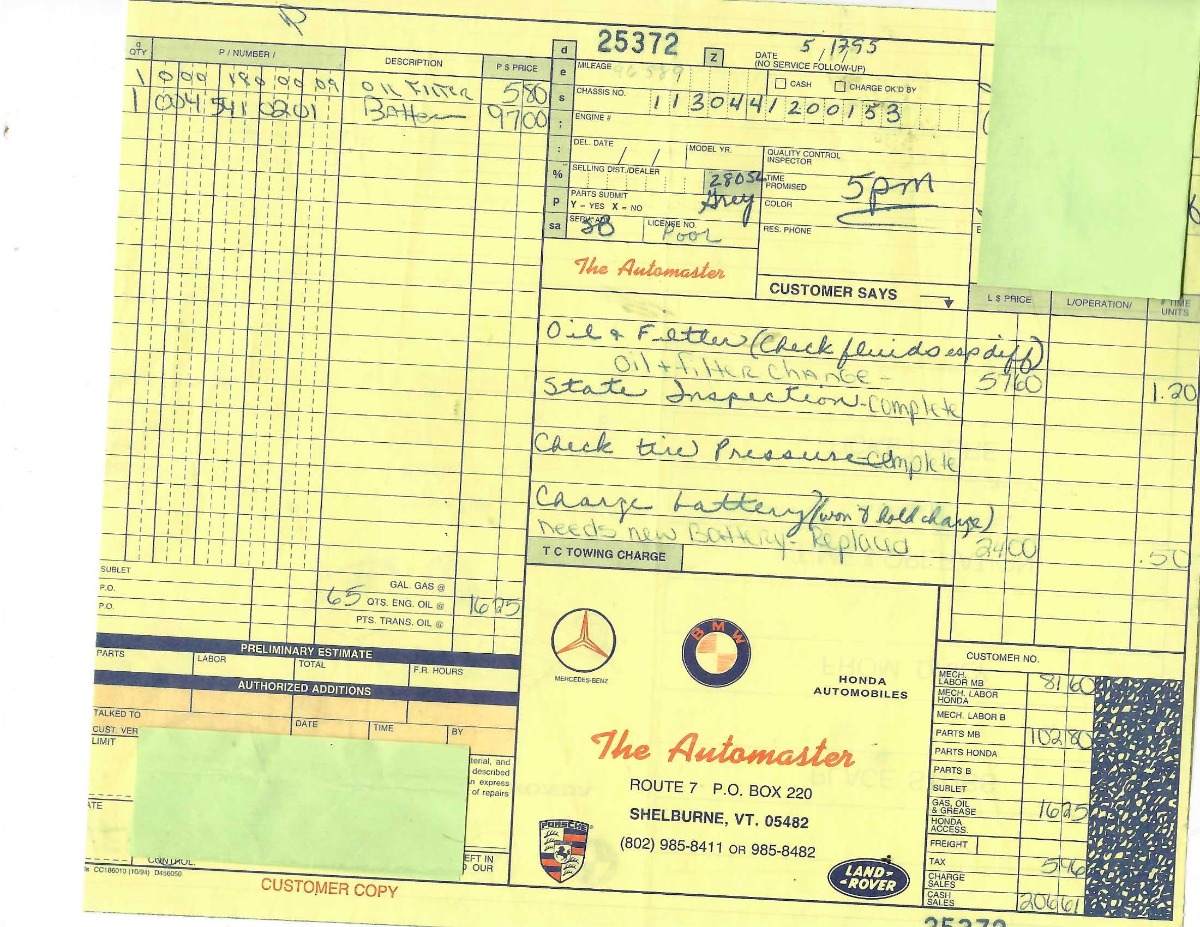 25372
Z
DATE 5/17/95
(NO SERVICE FOLLOW-UP)
QTY P / NUMBER / DESCRIPTION P $ PRICE
1 000 180 00 09 OIL FILTER 5 80
1 004 541 0201 Batter 97 00
MILEAGE 46589
CASH CHARGE OK'D BY
CHASSIS NO. 11304412200153
ENGINE #
DEL. DATE / / MODEL YR.
QUALITY CONTROL
INSPECTOR
SELLING DIST./DEALER
280SL
Grey
TIME
PROMISED 5pm
PARTS SUBMIT
Y – YES X – NO
COLOR
LICENSE NO.
Pool
RES. PHONE
The Automaster
CUSTOMER SAYS
L $ PRICE L/OPERATION/ TIME
UNITS
Oil & Filter (Check fluids esp diff)
Oil + filter CHANGE - 57 60 1.20
State Inspection - complete
Check tire Pressure - complete
Charge battery (won't hold charge)
needs new Battery - Replaced 24 00 .50
T C TOWING CHARGE
SUBLET
P.O.
P.O.
GAL. GAS @
65 QTS. ENG. OIL @ 16 25
PTS. TRANS. OIL @
PRELIMINARY ESTIMATE
PARTS LABOR TOTAL F.R. HOURS
AUTHORIZED ADDITIONS
TALKED TO DATE TIME BY
CUST. VER
LIMIT
terial, and
described
n express
of repairs
ATE
CONTROL.
EFT IN
OUR
CC186010 (10/94) D456050
CUSTOMER COPY
MERCEDES-BENZ
BMW
HONDA
AUTOMOBILES
The Automaster
ROUTE 7 P.O. BOX 220
SHELBURNE, VT. 05482
(802) 985-8411 OR 985-8482
PORSCHE
LAND-
-ROVER
CUSTOMER NO.
MECH.
LABOR MB 81 60
MECH. LABOR
HONDA
MECH. LABOR B
PARTS MB 102 80
PARTS HONDA
PARTS B
SUBLET
GAS, OIL
& GREASE 16 25
HONDA
ACCESS.
FREIGHT
TAX 5 96
CHARGE
SALES
CASH
SALES 206 61
25372